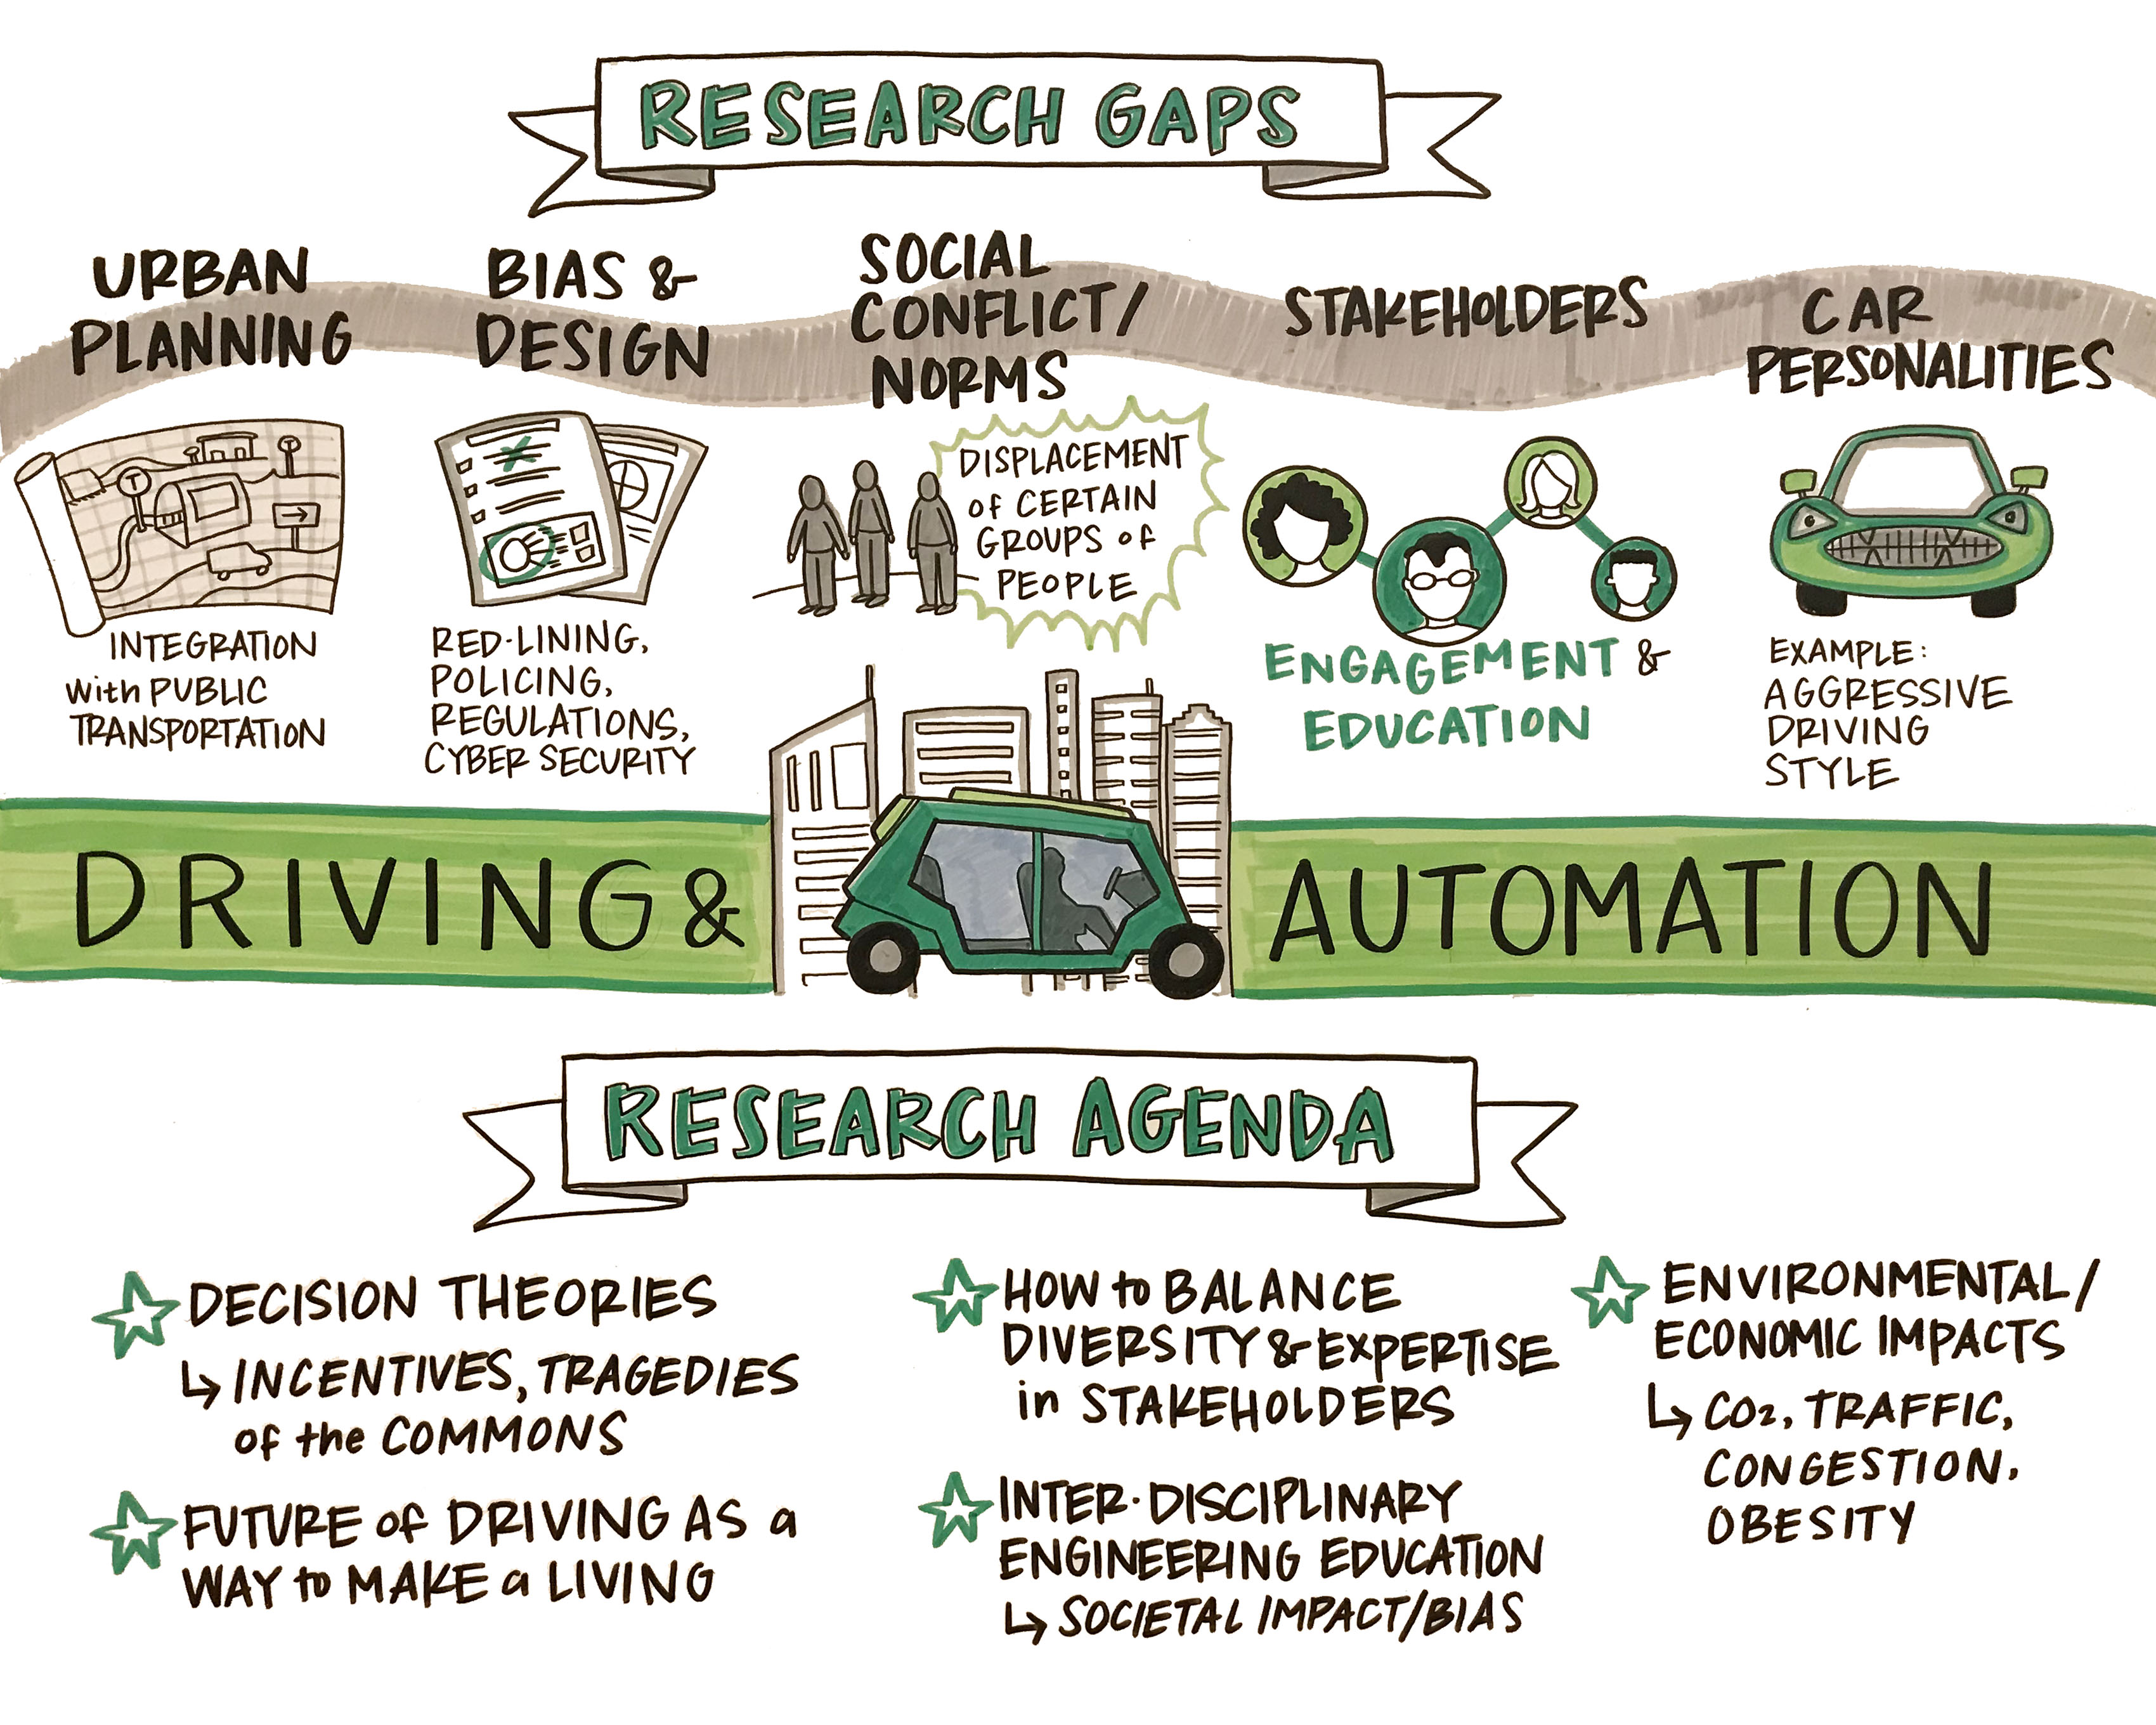 RESEARCH GAPS
URBAN
PLANNING
INTEGRATION
with PUBLIC
TRANSPORTATION
BIAS &
DESIGN
RED-LINING,
POLICING,
REGULATIONS,
CYBER SECURITY
SOCIAL
CONFLICT/
NORMS
DISPLACEMENT
of CERTAIN
GROUPS of
PEOPLE
STAKEHOLDERS
ENGAGEMENT &
EDUCATION
CAR
PERSONALITIES
EXAMPLE:
AGGRESSIVE
DRIVING
STYLE
T
T
DRIVING & AUTOMATION
RESEARCH AGENDA
DECISION THEORIES
↳ INCENTIVES, TRAGEDIES
of the COMMONS
FUTURE of DRIVING AS a
WAY to MAKE a LIVING
HOW to BALANCE
DIVERSITY & EXPERTISE
in STAKEHOLDERS
INTER-DISCIPLINARY
ENGINEERING EDUCATION
↳ SOCIETAL IMPACT/BIAS
ENVIRONMENTAL/
ECONOMIC IMPACTS
↳ CO2, TRAFFIC,
CONGESTION,
OBESITY